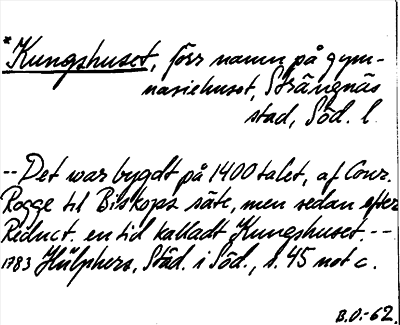 *Kungshuset, förr namn på gym-
nasiehuset, Strängnäs
stad, Söd. l.
-- Det war bygdt på 1400 talet, af Conr.
Rogge til Biskops säte, men sedan efter
Reduct. en tid kalladt Kungshuset. --
1783 Hülphers, Städ. i Söd., s. 45 not c.
B.O:-62.